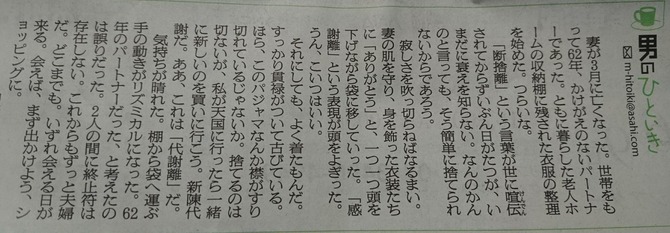 男のひといき
m-hitoiki@asahi.com
妻が3月に亡くなった。世帯をも
って62年、かけがえのないパートナ
ーであった。ともに暮らした老人ホ
ームの収納棚に残された衣服の整理
を始めた。つらいな。
「断捨離」という言葉が世に喧伝
されてからずいぶん日がたつが、い
まだに衰えを知らない。なんのかん
のと言っても、そう簡単に捨てられ
ないからであろう。
寂しさを吹っ切らねばなるまい。
妻の肌を守り、身を飾った衣装たち
に「ありがとう」と、一つ一つ頭を
下げながら袋に移していった。「感
謝離」という表現が頭をよぎった。
うん、こいつはいい。
それにしても、よく着たもんだ。
すっかり貫禄がついて古びている。
ほら、このパジャマなんか襟がすり
切れているじゃないか。捨てるのは
切ないが、私が天国に行ったら一緒
に新しいのを買いに行こう。新陳代
謝だ。ああ、これは「代謝離」だ。
気持ちが晴れた。棚から袋へ運ぶ
手の動きがリズミカルになった。62
年のパートナーだった、と考えたの
は誤りだった。2人の間に終止符は
存在しない。これからもずっと夫婦
だ。どこまでも。いずれ会える日が
来る。会えば、まず出かけよう、シ
ョッピングに。